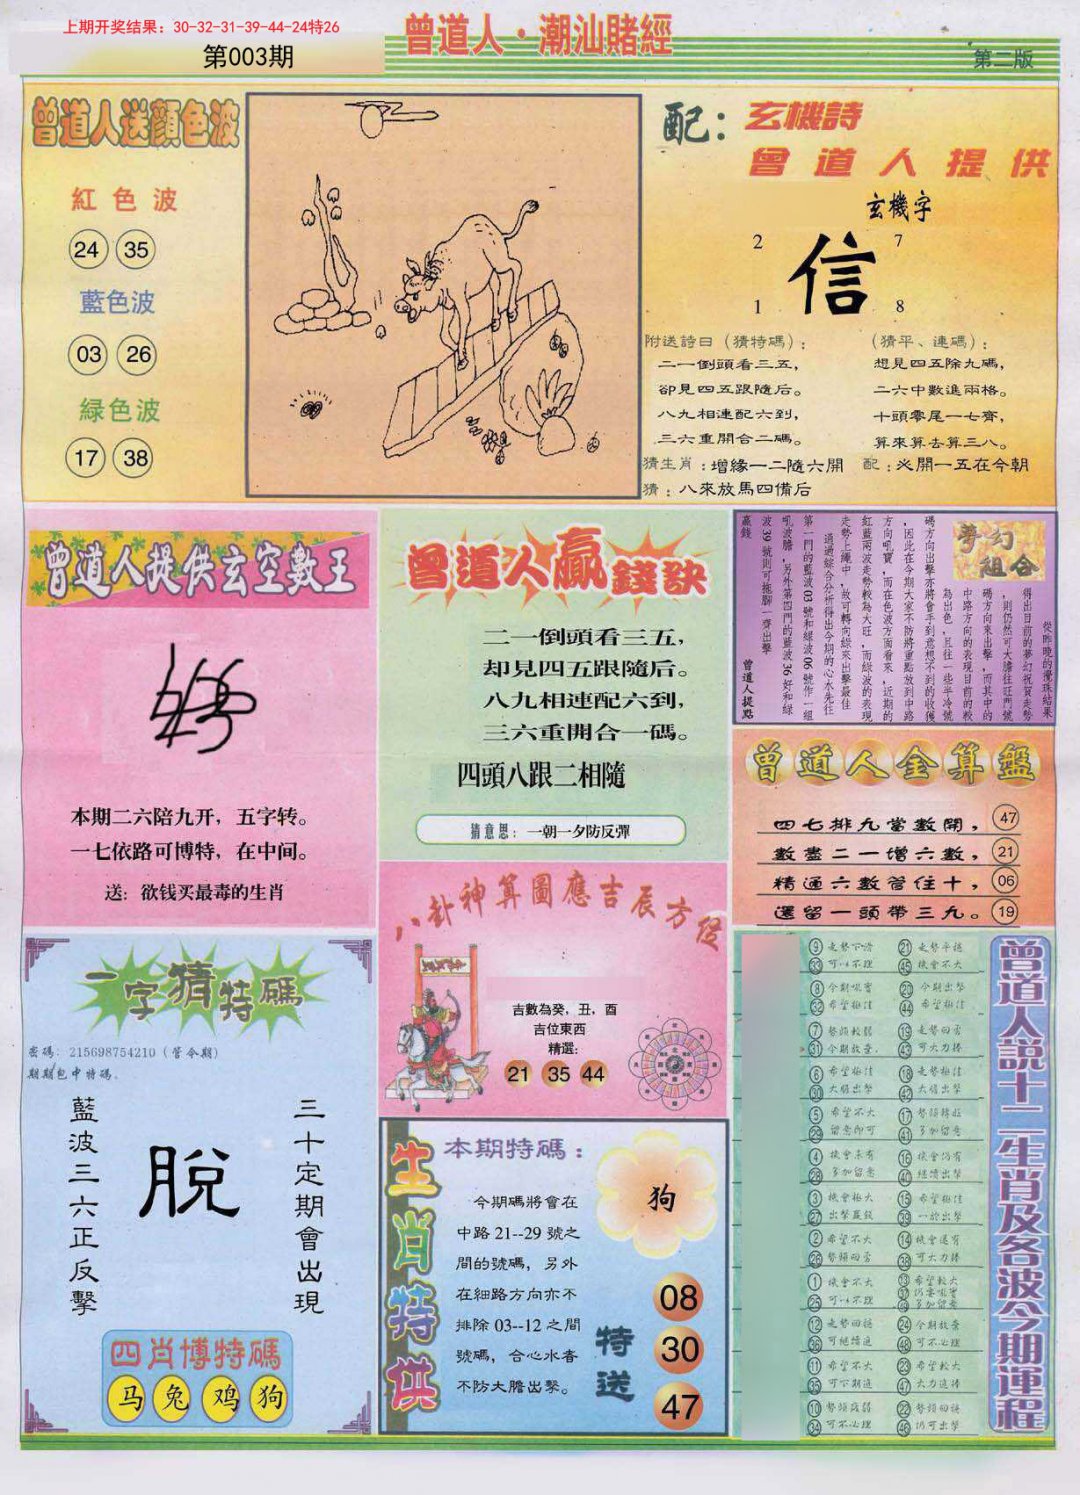 上期开奖结果：30-32-31-39-44-24特26
第003期
曾道人·潮汕賭經
第二版
曾道人送顔色波
紅色波
24 35
藍色波
03 26
緑色波
17 38
配：玄機詩
曾道人提供
玄機字
2 7
信
1 8
附送詩曰（猜特碼）：
二一倒頭看三五，
卻見四五跟隨后。
八九相連配六到，
三六重開合二碼。
（猜平、連碼）：
想見四五除九碼，
二六中數進兩格。
十頭零尾一七齊，
算來算去算三八。
猜生肖：增緣一二隨六開
配：必開一五在今朝
猜：八來放馬四備后
曾道人提供玄空數王
本期二六陪九开，五字转。
一七依路可博特，在中间。
送：欲钱买最毒的生肖
曾道人贏錢訣
二一倒頭看三五，
却見四五跟隨后。
八九相連配六到，
三六重開合一碼。
四頭八跟二相隨
猜意思：一朝一夕防反彈
夢幻組合
從昨晚的攪珠結果
得出目前的夢幻祝賀走勢
，則仍然可大膽往旺門號
碼方向來出擊，而其中的
中路方向的表現目前的較
為出色，且往一些半冷號
碼方向出擊亦將會手到意想不到的收獲
，因此在今期大家不防將重點放到中路
方向吼寶，而在色波方面看來，近期的
紅藍兩波走勢較為大旺，而綠波的表現
走勢上繩中，故可轉向綠來出擊最佳
通過綜合分析得出今期的心水先往
第一門的藍波03號和綠波06號作一組
吼波膽，另外第四門的藍波36好和綠
波39號則可拖腳一齊出擊
贏錢
曾道人提點
曾道人金算盤
四七排九當數開，47
數盡二一增六數，21
精通六數管住十，06
還留一頭帶三九。19
八卦神算圖應吉辰方位
吉數為癸，丑，酉
吉位東西
精選：
21 35 44
一字猜特碼
密碼：215698754210（管今期）
期期包中特碼。
藍波三六正反擊
脫
三十定期會出現
四肖博特碼
马 兔 鸡 狗
生肖特供
本期特碼：
今期碼將會在
中路21--29號之
間的號碼，另外
在細路方向亦不
排除03--12之間
號碼，合心水者
不防大膽出擊。
狗
特送
08
30
47
曾道人說十二生肖及各波今期運程
9 走勢下滑
33 可以不理
21 走勢平穩
45 機會不大
8 今期吼寶
32 希望極佳
20 今期出擊
44 希望極佳
7 勢頭較弱
31 今期放棄
19 走勢回氣
43 可大力捧
6 希望極佳
30 大膽出擊
18 走勢極佳
42 大膽出擊
5 希望不大
29 留意即可
17 勢頭轉旺
41 多加留意
4 機會未有
28 多加留意
16 機會仍有
40 繼續出擊
3 機會極大
27 出擊贏錢
15 希望極佳
39 一於出擊
2 希望不大
26 勢頭回氣
14 機會還有
38 可大力捧
1 機會不大
25 可以不理
13 希望較大
37 仍要吼寶
49 多加留意
12 走勢回穩
36 可繼續追
24 今期放棄
48 可不必理
11 希望不大
35 可下期追
23 希望較大
47 大力追捧
10 勢頭疲弱
34 可不必理
22 勢頭回穩
46 仍可出擊